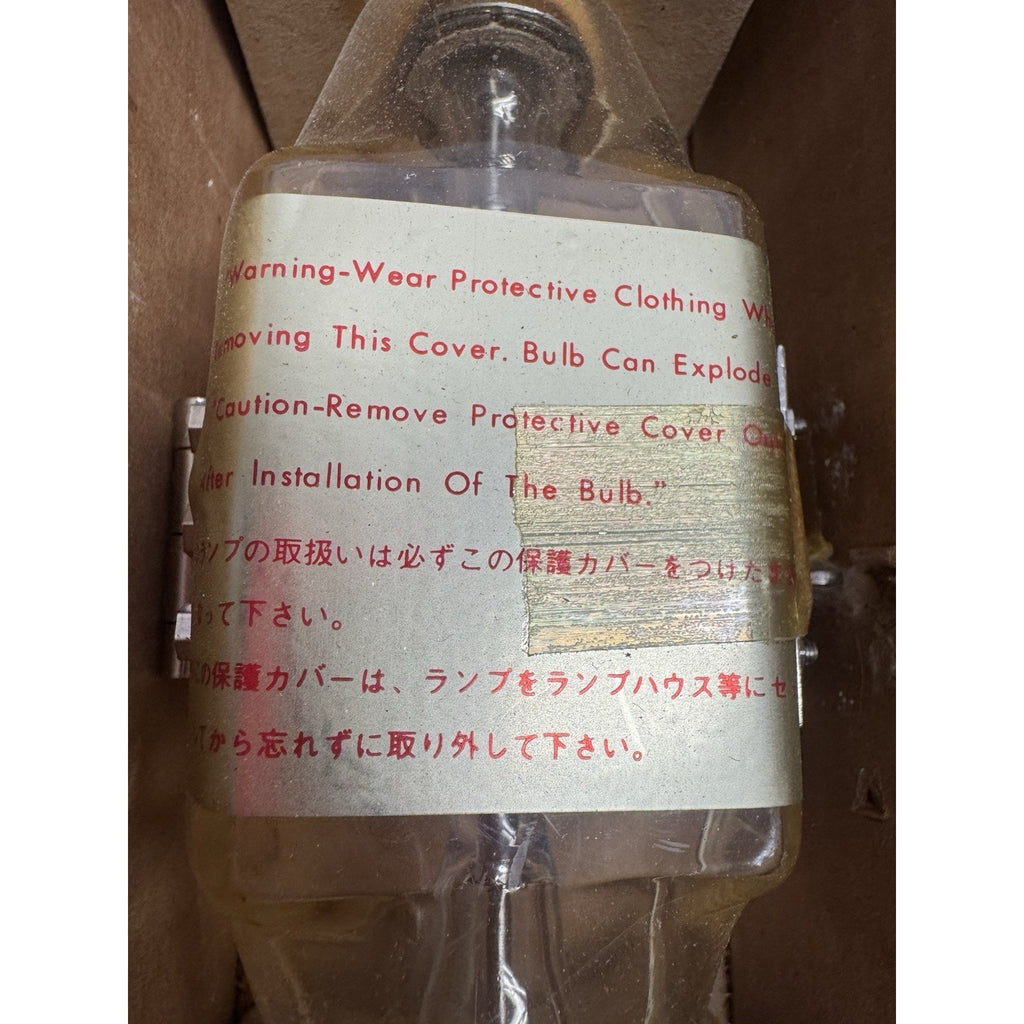 "Warning-Wear Protective Clothing
moving This Cover. Bulb Can Explode
"Caution-Remove Protective Cover
Installation Of The Bulb."
ランプの取扱いは必ずこの保護カバーをつけたまま
って下さい。
この保護カバーは、ランプをランプハウス等にセ
てから忘れずに取り外して下さい。